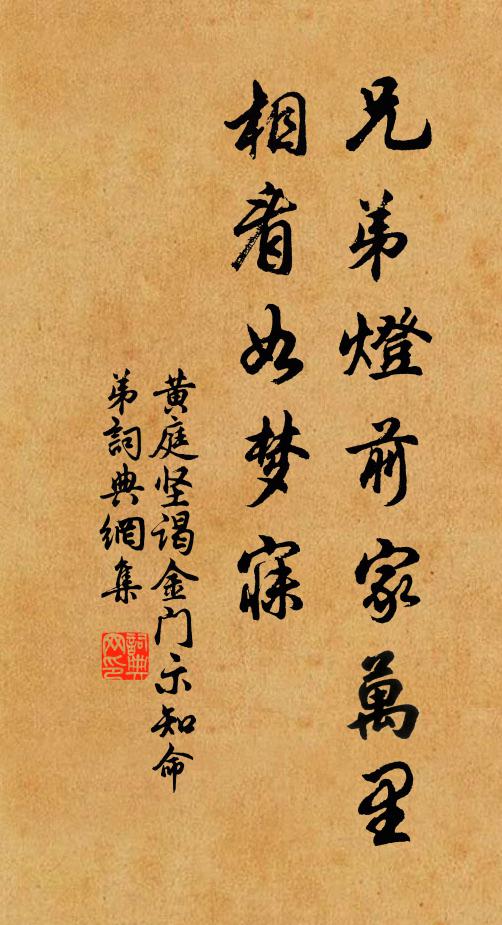 兄弟燈前家萬里
相看如梦寐
黄庭坚谒金门示知命
弟詞典網集
詞典網印